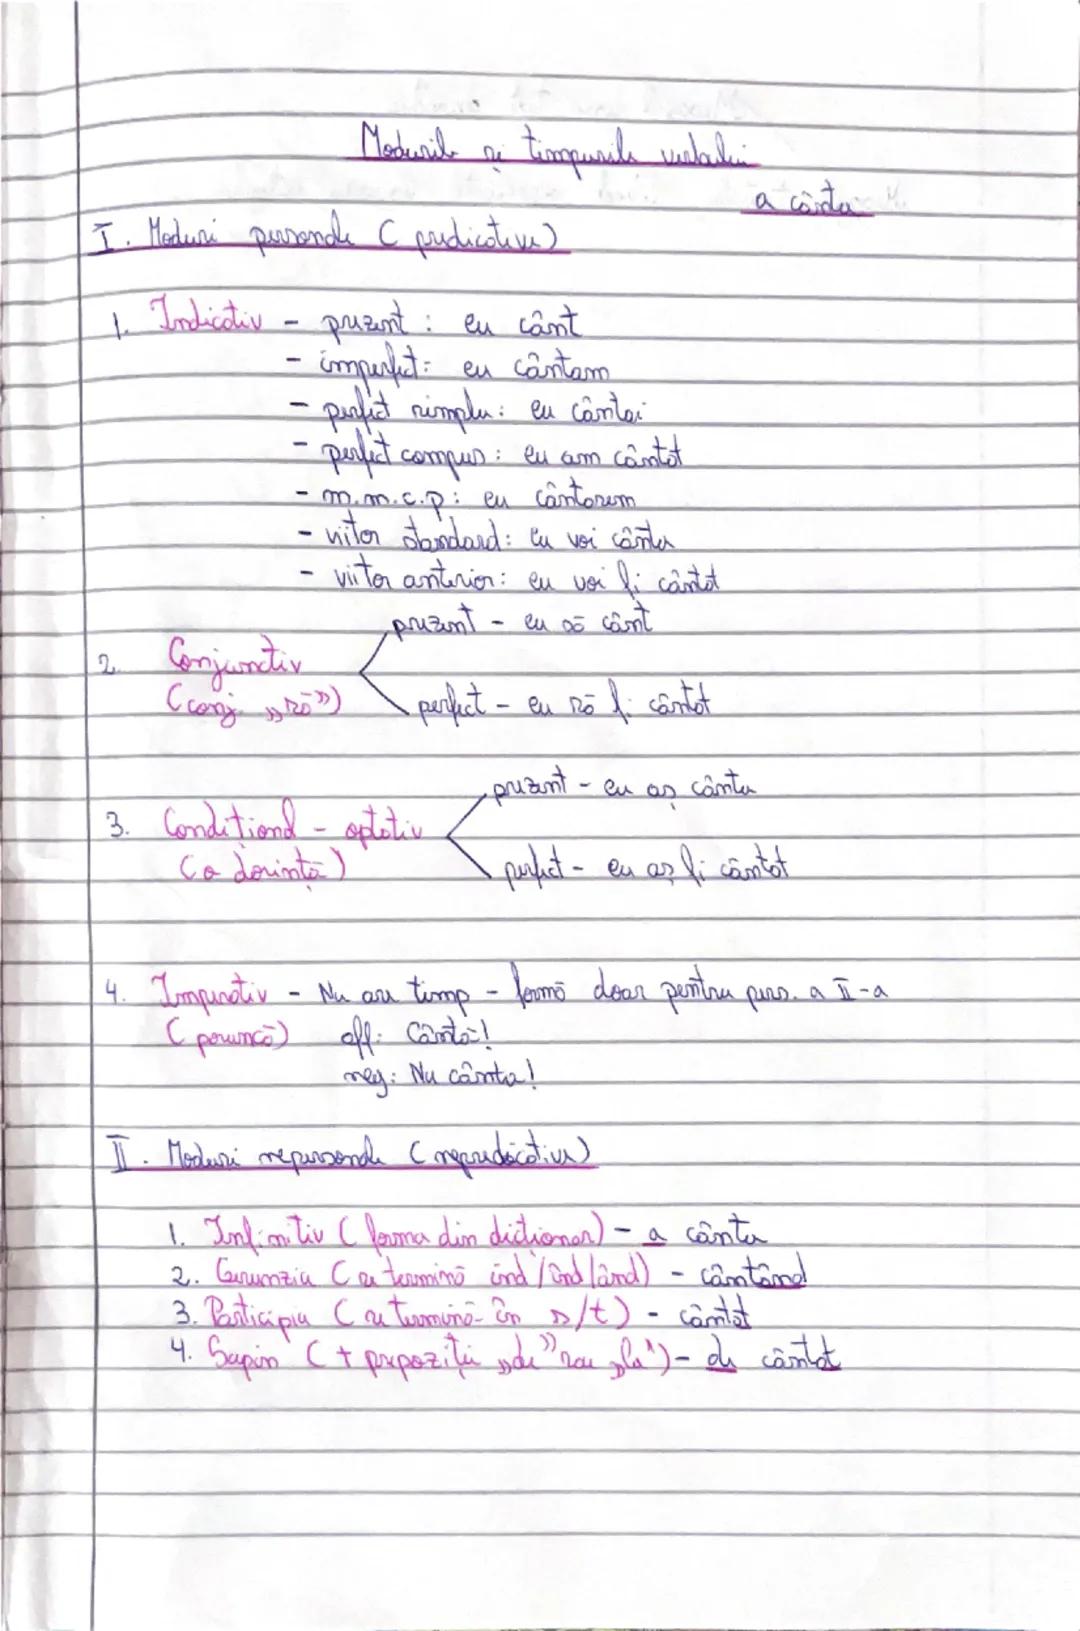 Modurile și timpurile verbului
a cânta
I. Moduri personale (predicative)
1. Indicativ - prezent: eu cânt
- imperfect: eu cântam
- perfect simplu: eu cântai
- perfect compus: eu am cântat
- m.m.c.p: eu cântasem
- viitor standard: eu voi cânta
- viitor anterior: eu voi fi cântat
prezent - eu să cânt
2. Conjunctiv
(conj. „să”) perfect - eu să fi cântat
prezent - eu aș cânta
3. Condițional - optativ
(o dorință) perfect - eu aș fi cântat
4. Imperativ - Nu are timp - formă doar pentru pers. a II-a
(poruncă) aff: Cântă!
neg: Nu cânta!
II. Moduri nepersonale (nepredicative)
1. Infinitiv (forma din dicționar) - a cânta
2. Gerunziu (se termină ind/înd/ând) - cântând
3. Participiu (se termină în s/t) - cântat
4. Supin (+ prepoziții „de” sau „la”) - de cântat